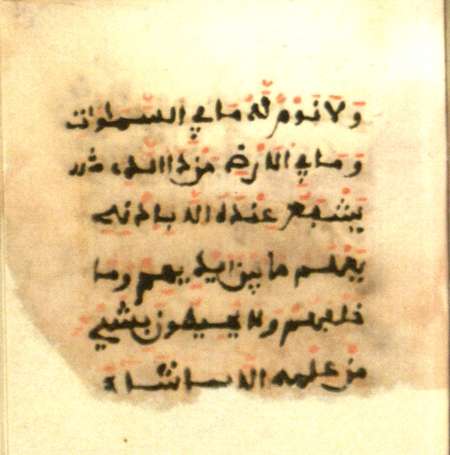 ولا نوم له ما في السموات
وما في الارض من ذا الذي
يشفع عنده الا باذنه
يعلم ما بين ايديهم وما
خلفهم ولا يحيطون بشيي
من علمه الا بما شاء